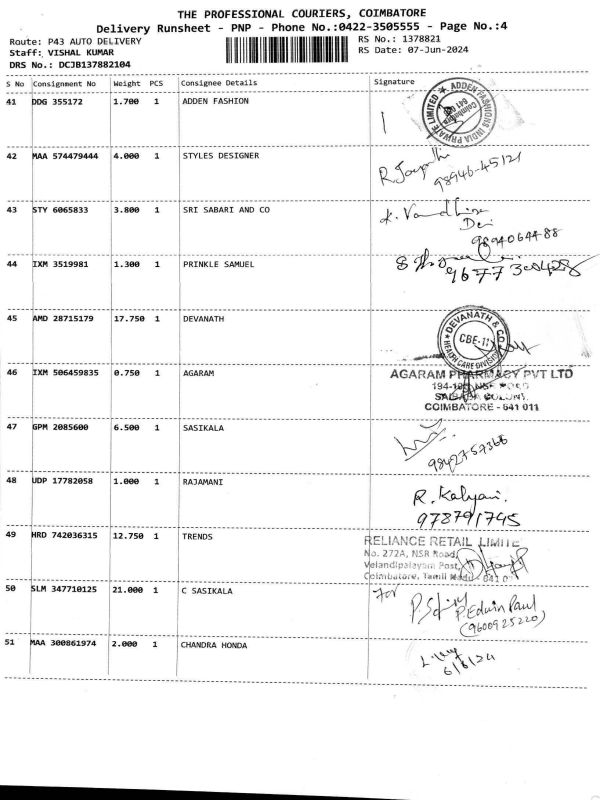 THE PROFESSIONAL COURIERS, COIMBATORE
Delivery Runsheet - PNP - Phone No.:0422-3505555 - Page No.:4
Route: P43 AUTO DELIVERY
RS No.: 1378821
Staff: VISHAL KUMAR
RS Date: 07-Jun-2024
DRS No.: DCJB137882104
S No Consignment No Weight PCS Consignee Details Signature
41 DDG 355172 1.700 1 ADDEN FASHION
ADDEN FASHIONS INDIA PRIVATE LIMITED
Coimbatore
42 MAA 574479444 4.000 1 STYLES DESIGNER
98946-45121
43 STY 6065833 3.800 1 SRI SABARI AND CO
9894064488
44 IXM 3519981 1.300 1 PRINKLE SAMUEL
45 AMD 28715179 17.750 1 DEVANATH
DEVANATH & CO
CBE-11
HEALTH CARE DIVISION
46 IXM 506459835 0.750 1 AGARAM
AGARAM PHARMACY PVT LTD
COIMBATORE - 641 011
47 GPM 2085600 6.500 1 SASIKALA
9842757366
48 UDP 17782058 1.000 1 RAJAMANI
R. Kalyani.
978791745
49 HRD 742036315 12.750 1 TRENDS
RELIANCE RETAIL LIMITE
No. 272A, NSR Road,
Velandipalayam Post,
Coimbatore, Tamil Nadu - 641 0
50 SLM 347710125 21.000 1 C SASIKALA
For
P. Edwin Paul
(9600925220)
51 MAA 300861974 2.000 1 CHANDRA HONDA
6/6/24